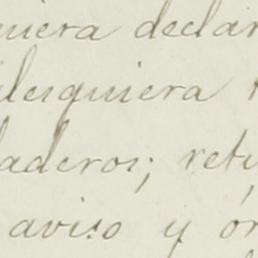 uiera declar
ilesquiera
laderos; retu
aviso y ór